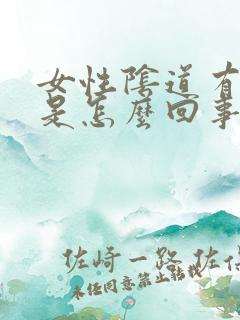 女性陰道有
是怎麼回事
佐崎一路 佐佐
未經同意禁止轉載